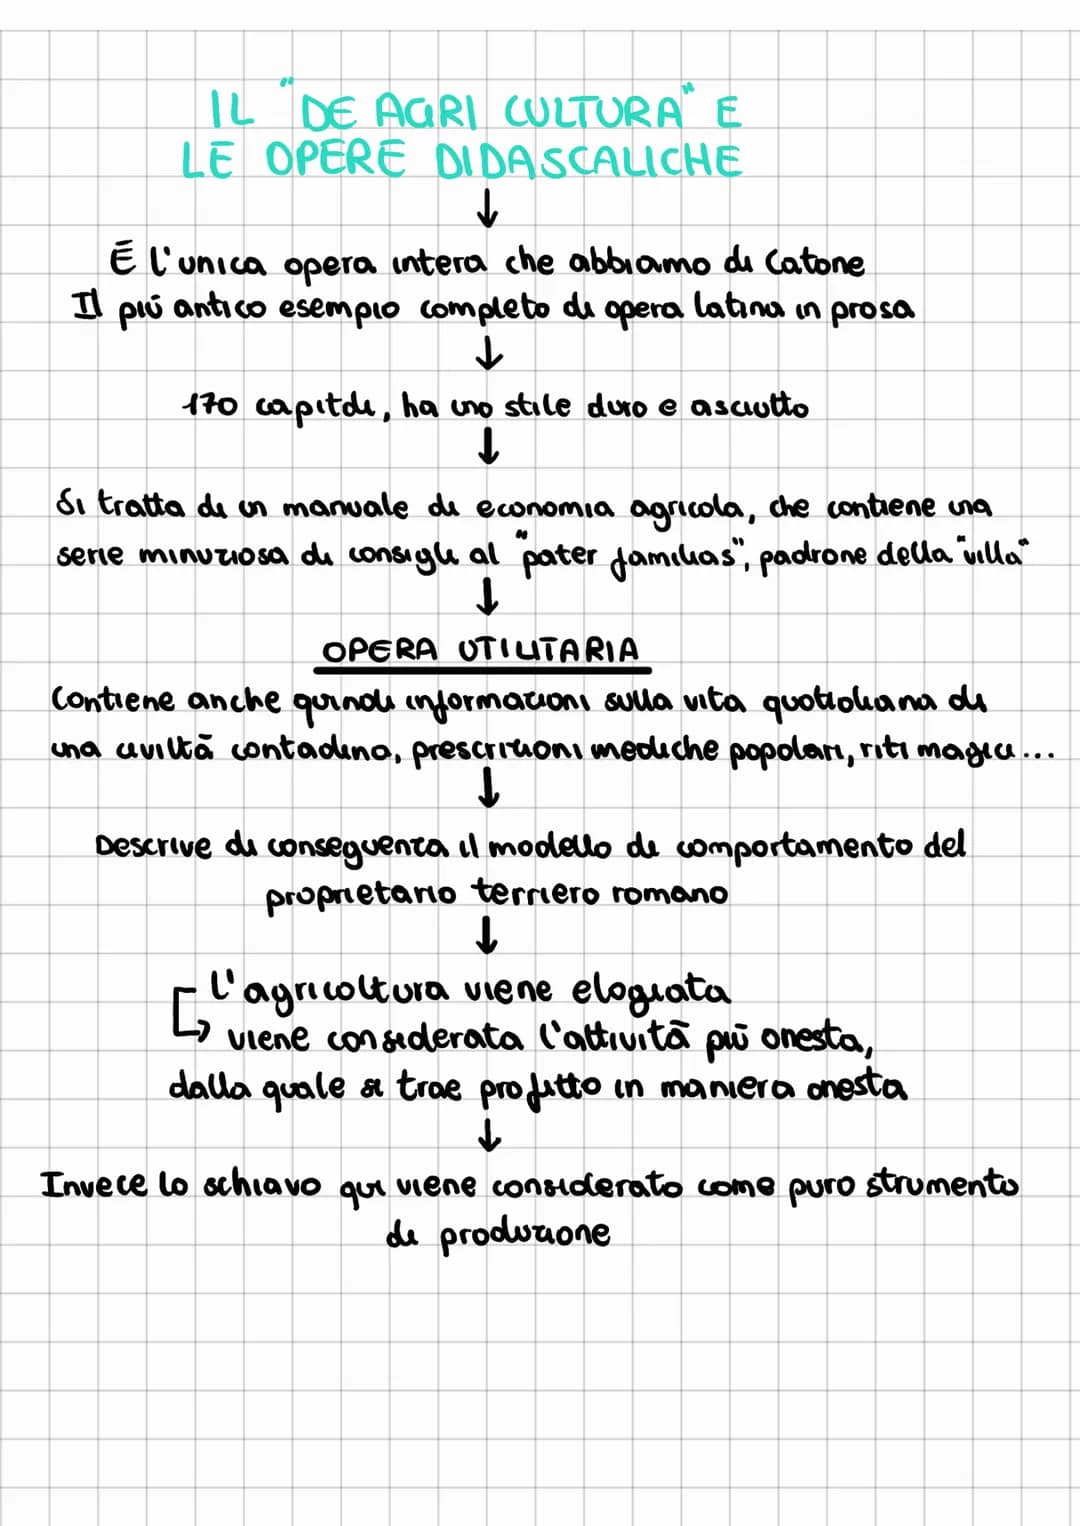 IL "DE AGRI CULTURA" E
LE OPERE DIDASCALICHE
↓
È l'unica opera intera che abbiamo di Catone
Il più antico esempio completo di opera latina in prosa
↓
170 capitoli, ha uno stile duro e asciutto
↓
Si tratta di un manuale di economia agricola, che contiene una
serie minuziosa di consigli al "pater familias", padrone della "villa"
↓
OPERA UTILITARIA
Contiene anche quindi informazioni sulla vita quotidiana di
una civiltà contadina, prescrizioni mediche popolari, riti magici...
↓
Descrive di conseguenza il modello di comportamento del
proprietario terriero romano
↓
L'agricoltura viene elogiata
↳ viene considerata l'attività più onesta,
dalla quale si trae profitto in maniera onesta
↓
Invece lo schiavo qui viene considerato come puro strumento
di produzione